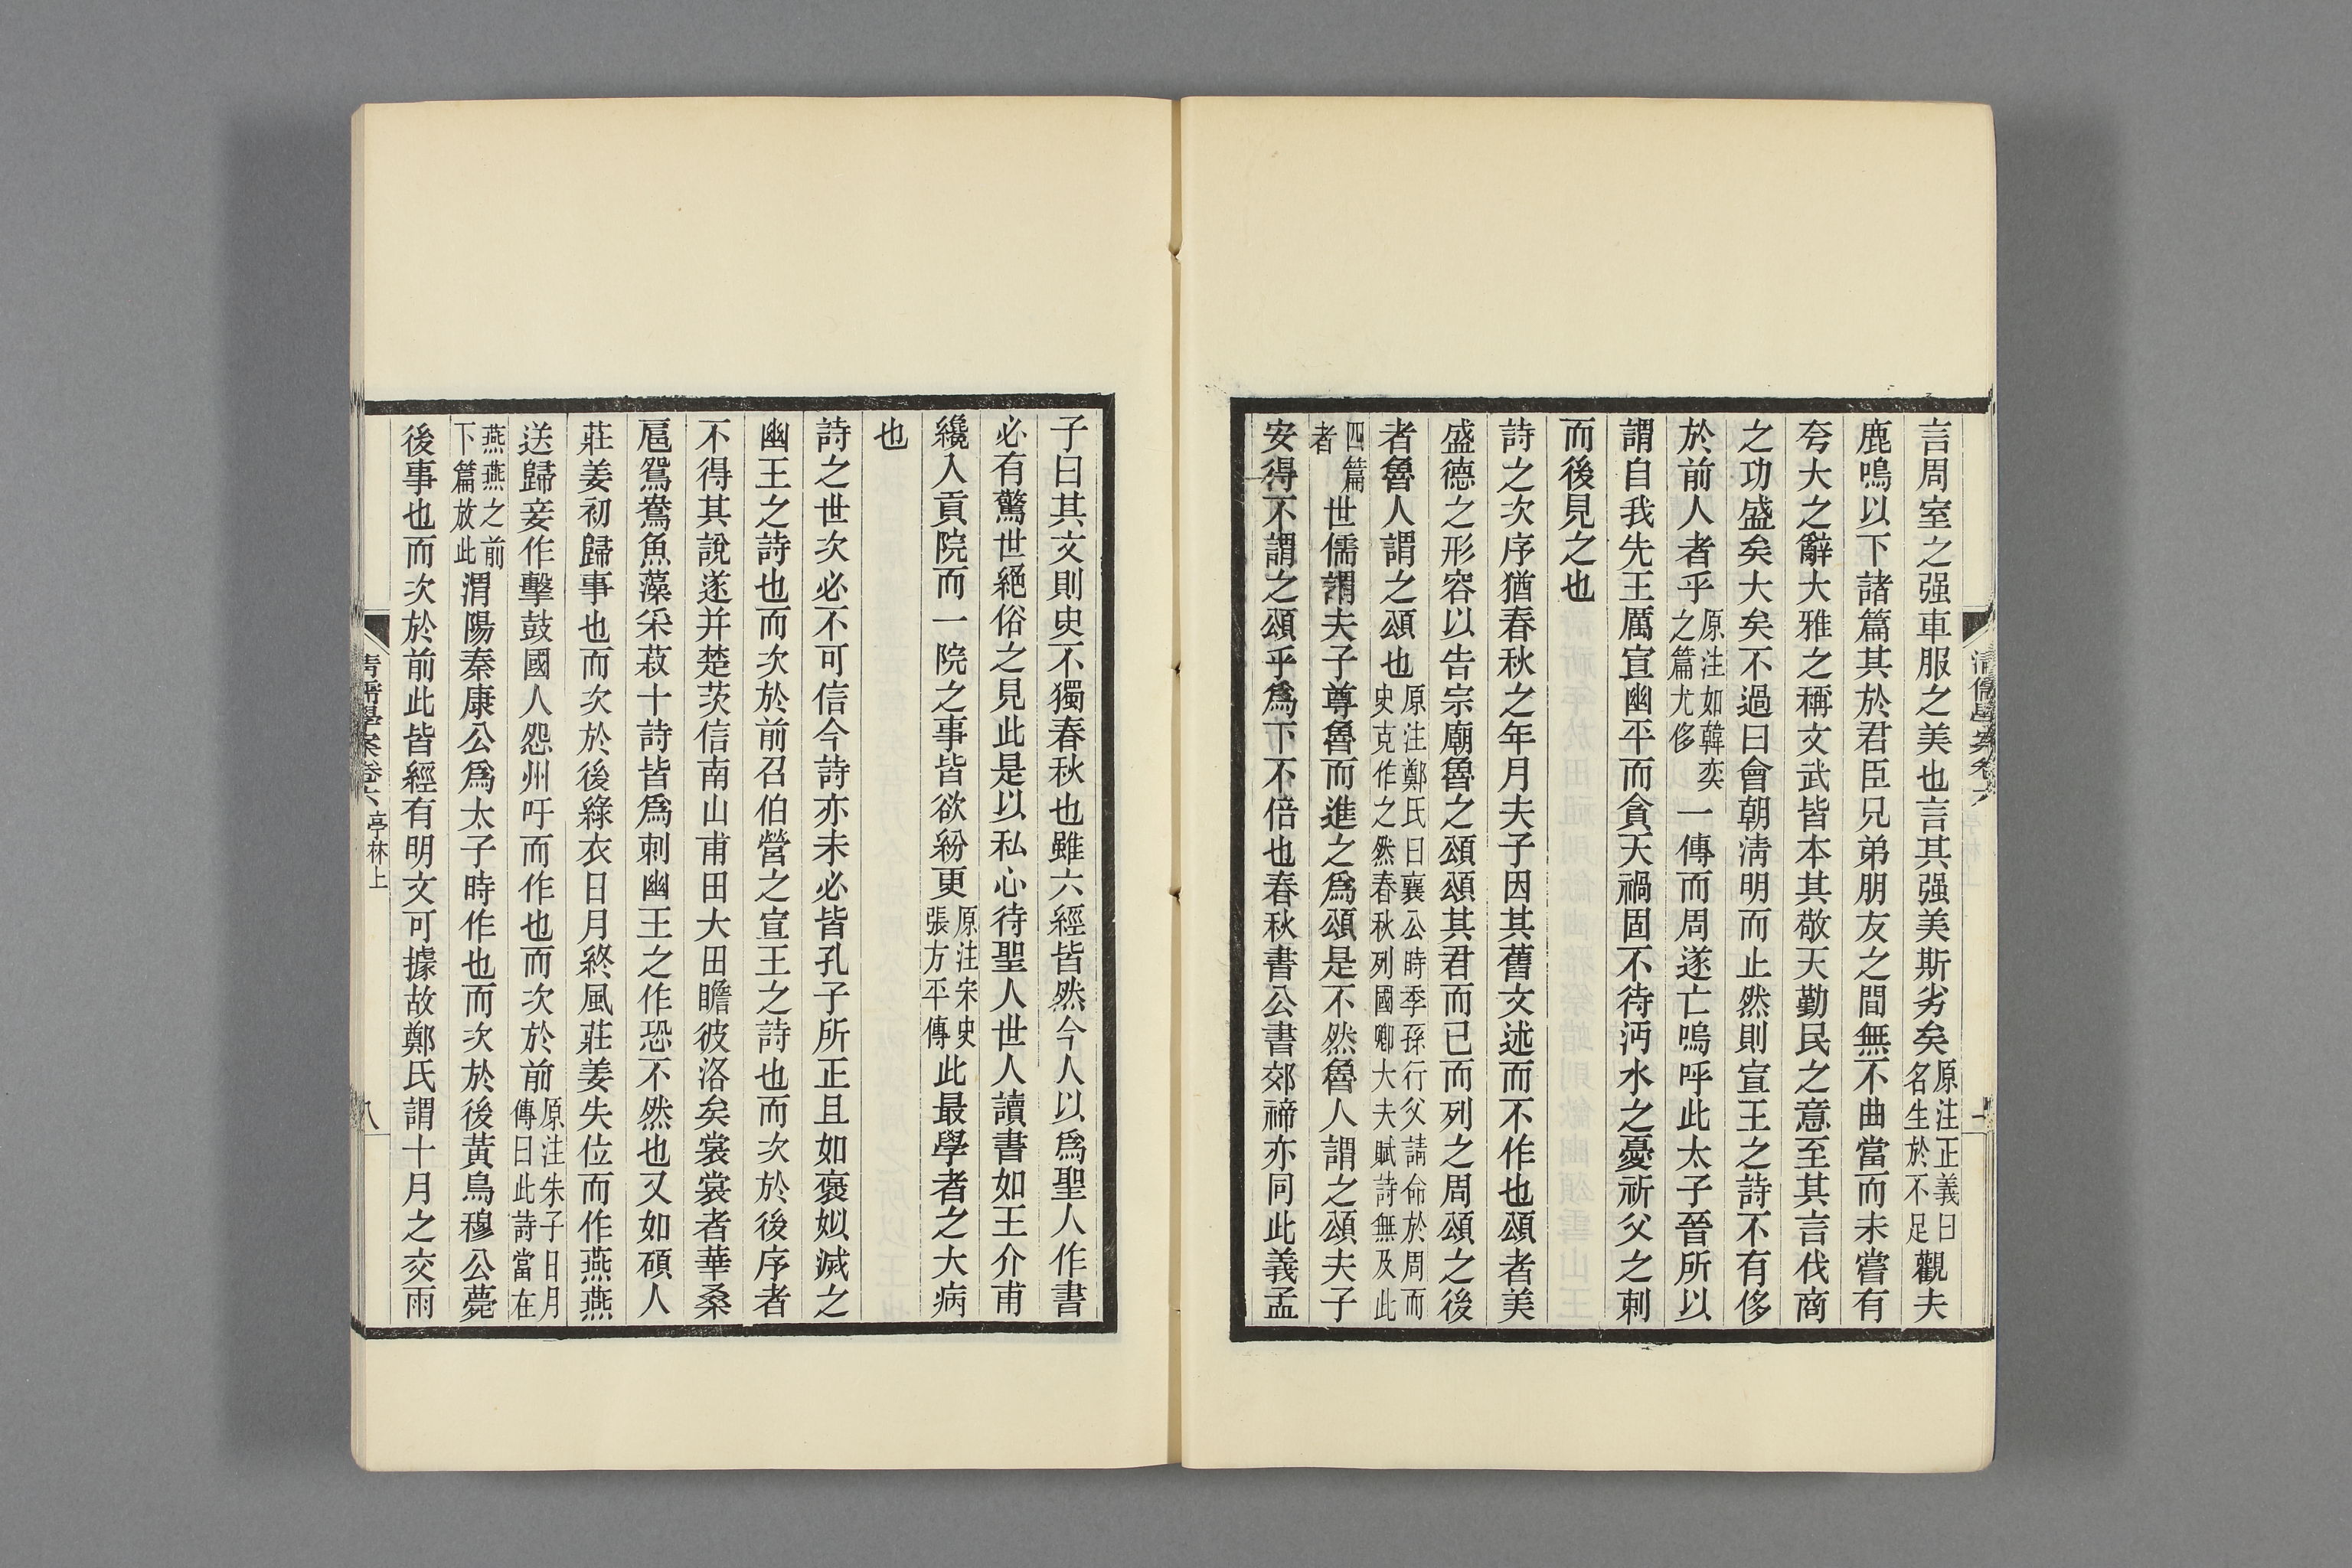 言周室之强車服之美也言其强美斯劣矣原注正義曰名生於不足觀夫
鹿鳴以下諸篇其於君臣兄弟朋友之間無不曲當而未嘗有
夸大之辭大雅之稱文武皆本其敬天勤民之意至其言伐商
之功盛矣大矣不過曰會朝淸明而止然則宣王之詩不有侈
於前人者乎原注如韓奕之篇尤侈一傳而周遂亡嗚呼此太子晉所以
謂自我先王厲宣幽平而貪天禍固不待沔水之憂祈父之刺
而後見之也
詩之次序猶春秋之年月夫子因其舊文述而不作也頌者美
盛德之形容以告宗廟魯之頌頌其君而已而列之周頌之後
者魯人謂之頌也原注鄭氏曰襄公時季孫行父請命於周而史克作之然春秋列國卿大夫賦詩無及此
四篇者世儒謂夫子尊魯而進之爲頌是不然魯人謂之頌夫子
安得不謂之頌乎爲下不倍也春秋書公書郊禘亦同此義孟
子曰其文則史不獨春秋也雖六經皆然今人以爲聖人作書
必有驚世絕俗之見此是以私心待聖人世人讀書如王介甫
纔入貢院而一院之事皆欲紛更原注宋史張方平傳此最學者之大病
也
詩之世次必不可信今詩亦未必皆孔子所正且如褒姒滅之
幽王之詩也而次於前召伯營之宣王之詩也而次於後序者
不得其說遂并楚茨信南山甫田大田瞻彼洛矣裳裳者華桑
扈鴛鴦魚藻采菽十詩皆爲刺幽王之作恐不然也又如碩人
莊姜初歸事也而次於後綠衣日月終風莊姜失位而作燕燕
送歸妾作擊鼓國人怨州吁而作也而次於前原注朱子日月傳曰此詩當在
燕燕之前下篇放此渭陽秦康公爲太子時作也而次於後黃鳥穆公薨
後事也而次於前此皆經有明文可據故鄭氏謂十月之交雨
淸儒學案卷六 亭林上
八